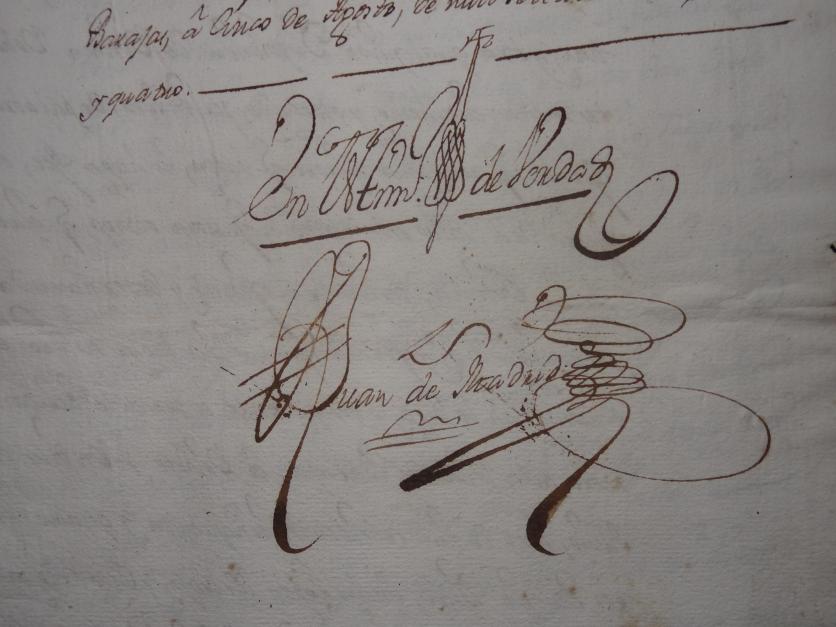 Barajas, â Cinco de Agosto, de mill
y quatro.
En Testim.º de Verdad
Juan de Madrid